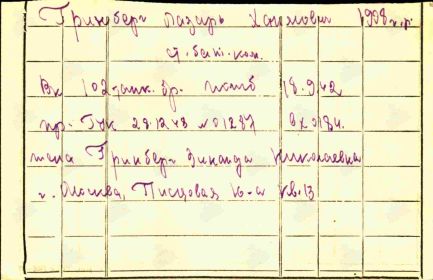 Гринберг Лазарь Хаимович 1908 г.р.
ст. бат. ком.
Вк 102 танк. бр. погиб 18.9.42
пр. ГУК 28.12.43 № 01287 вх 0184.
жена Гринберг Зинаида Николаевна
г. Москва, Писцовая 16-а кв. 13